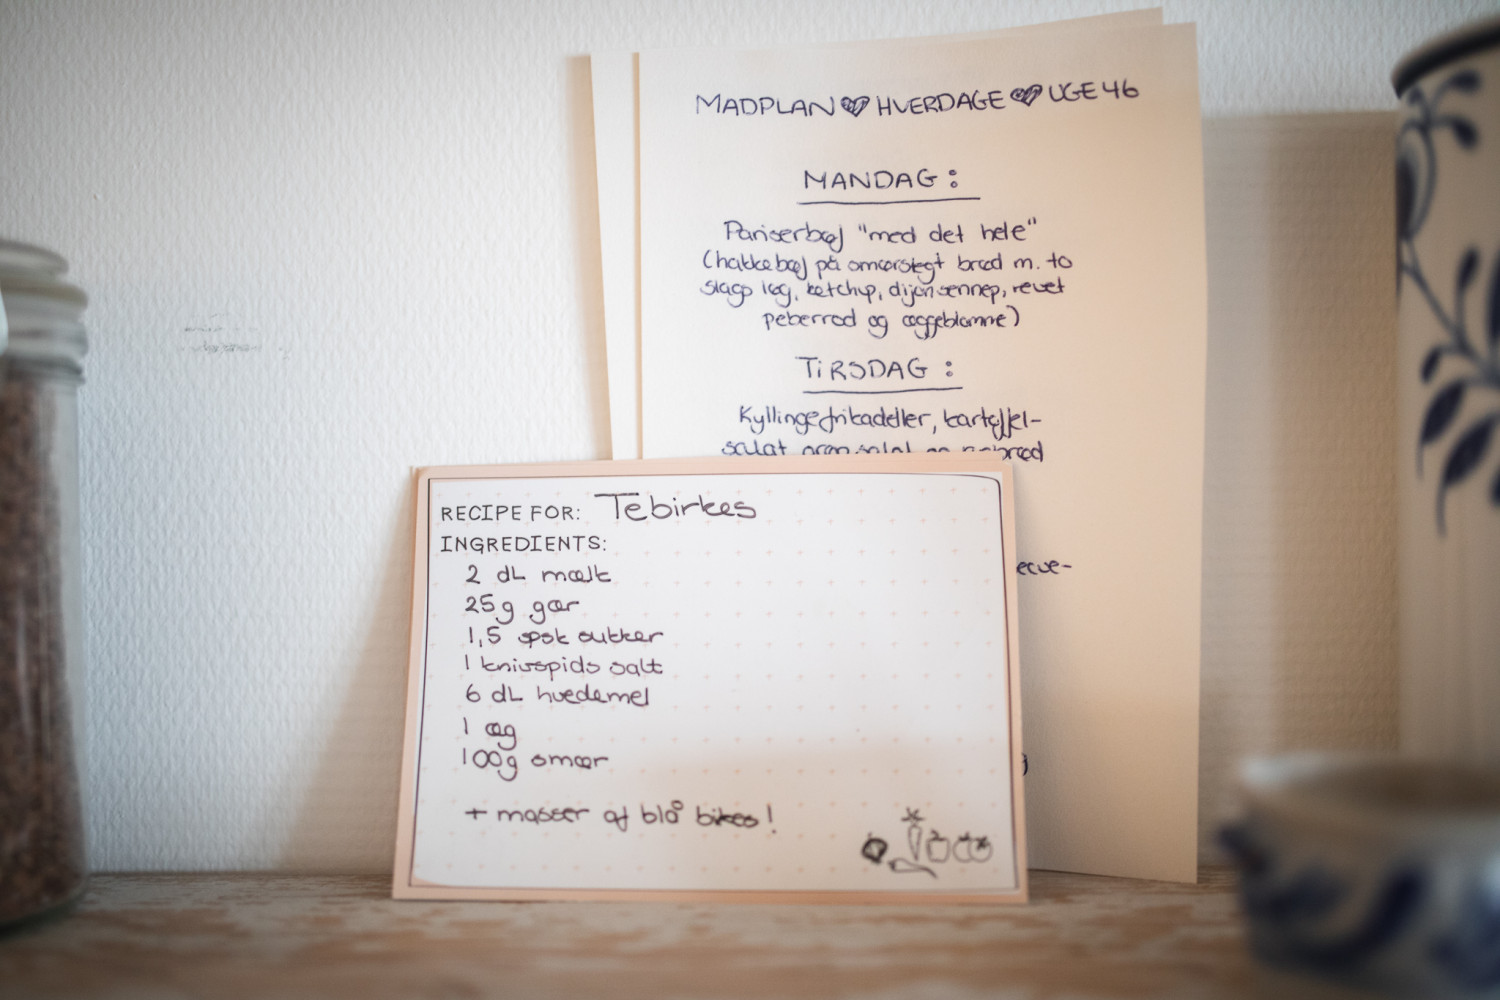 MADPLAN HVERDAGE UGE 46
MANDAG:
Pariserbøf "med det hele"
(hakkebøf på smørstegt brød m. to
slags løg, ketchup, dijonsennep, revet
peberrod og æggeblomme)
TiRSDAG:
Kyllingefrikadeller, kartoffel-
salat, grøn salat og rugbrød
ecue-
RECIPE FOR: Tebirkes
INGREDIENTS:
2 dL mælk
25g gær
1,5 spsk sukker
1 knivspids salt
6 dL hvedemel
1 æg
100g smør
+ masser af blå bikes!